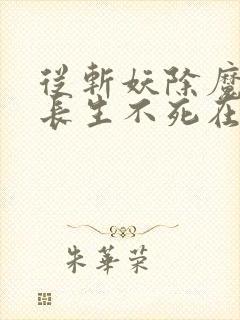 從斬妖除魔
長生不死在
朱華榮